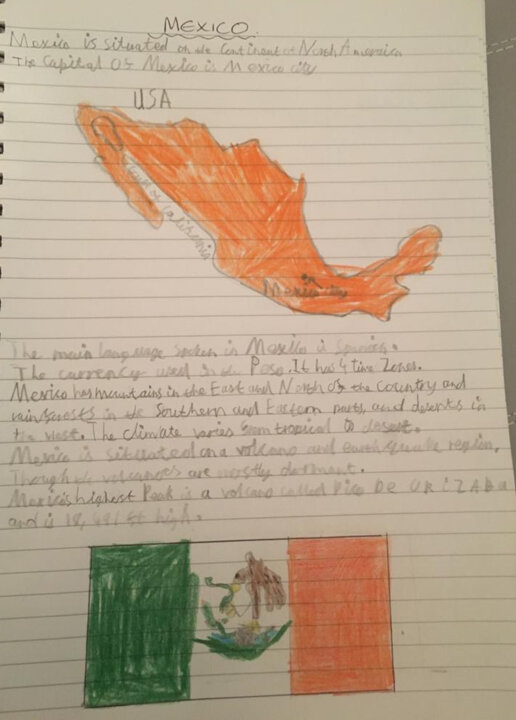 MEXICO.
Mexico is situated on the Continent of North America
The Capital Of Mexico is Mexico city
USA
Gulf of California
Mexico city
The main language spoken in Mexico is Spanish.
The currency used is the Peso. It has 4 time Zones.
Mexico has mountains in the East and North of the Country and
rainforests in the Southern and Eastern parts, and deserts in
the west. The climate varies from tropical to desert.
Mexico is situated on a volcano and earthquake region,
Though volcanoes are mostly dormant.
Mexicis highest Peak is a volcano called Pico De ORIZABa
and is 18,491 ft high.